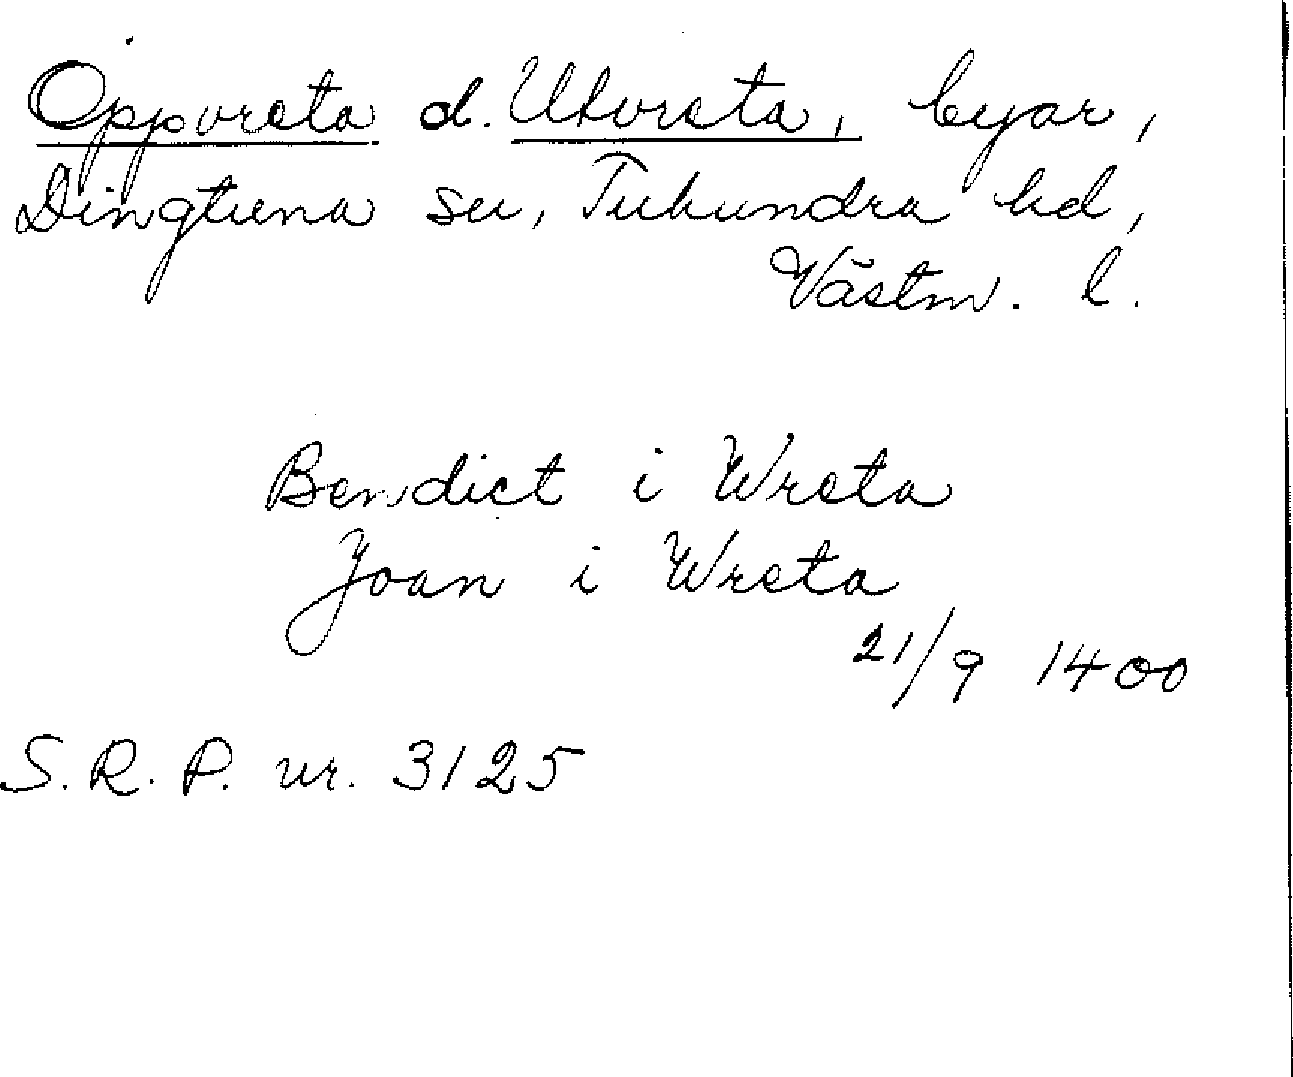 Oppvreta el. Utvreta, byar,
Dingtuna sn, Tuhundra hd,
Västm. l.
Bendict i Wreta
Joan i Wreta
21/9 1400
S.R.P. nr. 3125